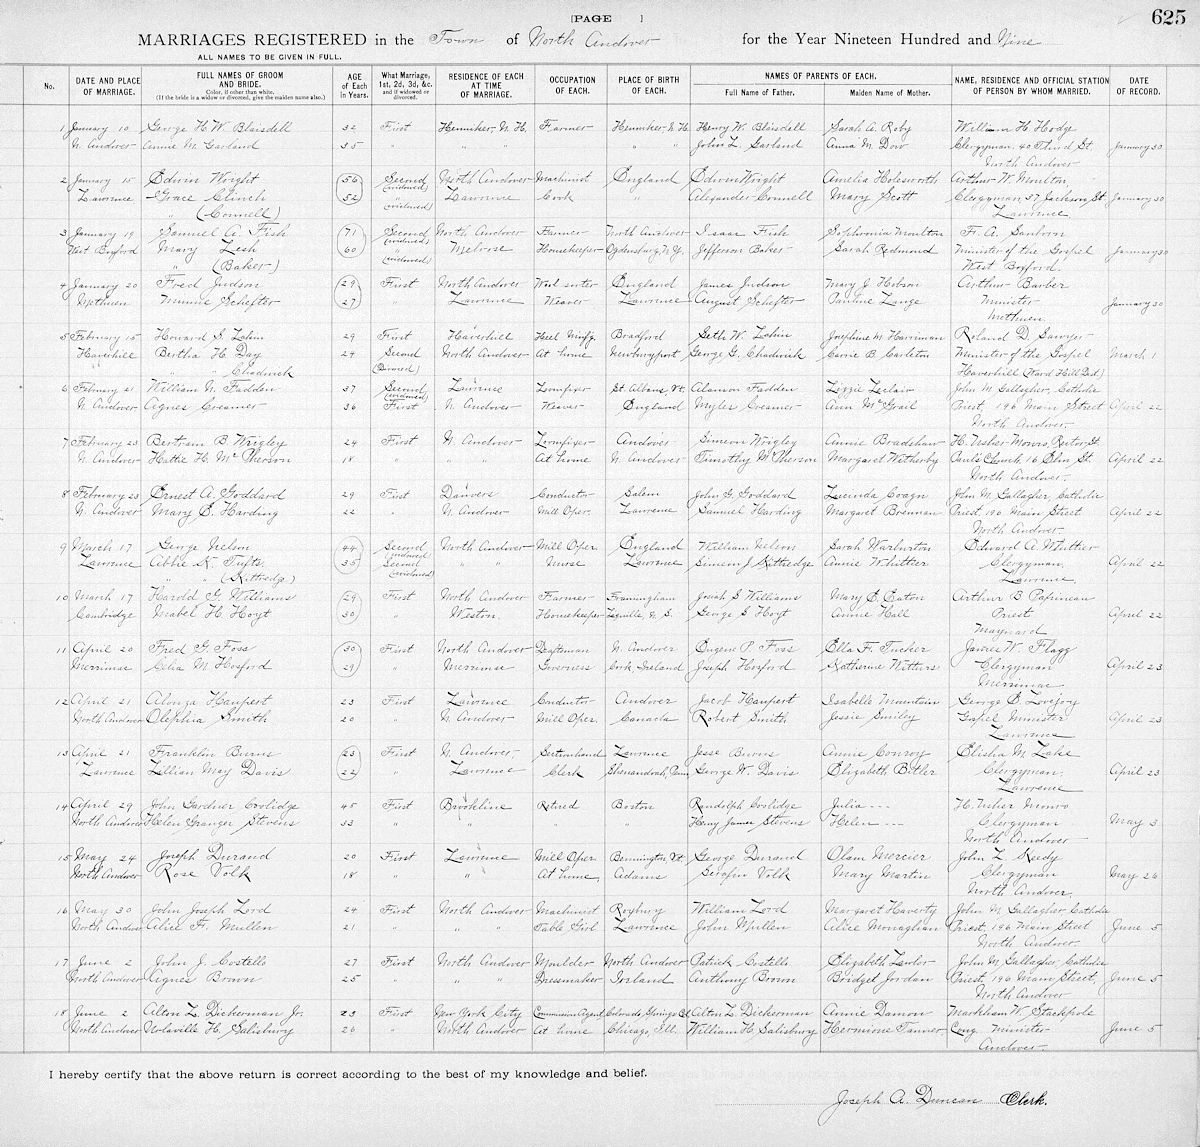 [PAGE ]
625
MARRIAGES REGISTERED in the Town of North Andover for the Year Nineteen Hundred and Nine
ALL NAMES TO BE GIVEN IN FULL.
No. DATE AND PLACE OF MARRIAGE. FULL NAMES OF GROOM AND BRIDE. Color, if other than white. (If the bride is a widow or divorced, give the maiden name also.) AGE of Each in Years. What Marriage, 1st, 2d, 3d, &c. and if widowed or divorced. RESIDENCE OF EACH AT TIME OF MARRIAGE. OCCUPATION OF EACH. PLACE OF BIRTH OF EACH. NAMES OF PARENTS OF EACH. Full Name of Father. Maiden Name of Mother. NAME, RESIDENCE AND OFFICIAL STATION OF PERSON BY WHOM MARRIED. DATE OF RECORD.
1 January 10 George H. W. Blaisdell 32 First Henniker, N. H. Farmer Henniker N. H. Henry W. Blaisdell Sarah A. Roby William H. Hodge
N. Andover Annie M. Garland 35 " " " " " John L. Garland Anna M. Dow Clergyman 40 Third St January 30
North Andover
2 January 15 Edwin Wright 56 Second (widowed) North Andover Machinist England Edwin Wright Amelia Holdsworth Arthur W. Moulton
Lawrence Grace Clinch 52 " (widowed) Lawrence Cook " Alexander Connell Mary Scott Clergyman, 37 Jackson St January 30
" (Connell) Lawrence
3 January 19 Samuel A. Fish 71 Second (widowed) North Andover Farmer North Andover Isaac Fish Sophronia Moulton F. A. Sanborn
West Boxford Mary Lesh 60 " (widowed) Melrose Housekeeper Ogdensburg N. Y. Jefferson Baker Sarah Redmond Minister of the Gospel January 30
" (Baker) West Boxford
4 January 20 Fred Judson 29 First North Andover Wool sorter England James Judson Mary J. Hobson Arthur Barber
Methuen Minnie Schefter 27 " Lawrence Weaver Lawrence August Schefter Pauline Lange Minister January 30
Methuen
5 February 15 Howard S. 29 First Haverhill Heel Mnfg. Bradford Seth W. Josephine M. Harriman Roland D. Sawyer
Haverhill Bertha H. Day 24 Second (Divorced) North Andover At home Newburyport George G. Chadwick Carrie B. Carleton Minister of the Gospel March 1
" " Chadwick Haverhill (Ward Hill Dist)
6 February 21 William N. Fadden 37 Second (widowed) Lawrence Loomfixer St. Albans, Vt. Alanson Fadden Lizzie Leclair John M. Gallagher, Catholic
N. Andover Agnes Creamer 36 First N. Andover Weaver England Myles Creamer Ann McGrail Priest, 196 Main Street April 22
North Andover
7 February 23 Bertram B Wrigley 24 First N. Andover Loomfixer Andover Simeon Wrigley Annie Bradshaw H. Usher Monro, Rector St.
N. Andover Hattie H. McPherson 18 " " " At home N. Andover Timothy McPherson Margaret Witherby Paul's Church, 16 Elm St. April 22
North Andover.
8 February 23 Ernest A. Goddard 29 First Danvers Conductor Salem John G. Goddard Lucinda John M. Gallagher, Catholic
N. Andover Mary E. Harding 22 " N. Andover Mill Oper. Lawrence Samuel Harding Margaret Brennan Priest 196 Main Street April 22
North Andover
9 March 17 George Nelson 44 Second (widowed) North Andover Mill Oper. England William Nelson Sarah Warburton Edward A. Whittier
Lawrence Abbie K. Tufts 35 Second (widowed) " " Nurse Lawrence Simeon J. Kittredge Annie Whittier Clergyman, April 22
" " (Kittredge) Lawrence
10 March 17 Harold G. Williams 29 First North Andover Farmer Framingham Josiah S Williams Mary E. Eaton Arthur B Papineau
Cambridge Mabel H. Hoyt 30 " Weston Housekeeper N. S. George S Hoyt Annie Hall Priest April 22
Maynard
11 April 20 Fred G. Foss 30 First North Andover Draftsman N. Andover Eugene P. Foss Ella F. Tucker James W. Flagg
Merrimac Celia M Hosford 29 " Merrimac Governess Cork, Ireland Joseph Hosford Katherine Withers Clergyman April 23
Merrimac
12 April 21 Alonza Haupert 23 First Lawrence Conductor Andover Jacob Haupert Isabelle Mountain George E. Lovejoy
North Andover Olephia Smith 20 " N. Andover Mill Oper. Canada Robert Smith Jessie Smiley Gospel Minister April 23
Lawrence
13 April 21 Franklin Burns 23 First N. Andover Lawrence Jesse Burns Annie Conroy Elisha M. Lake
Lawrence Lillian May Davis 22 " Lawrence Clerk Shenandoah, Penn George W. Davis Elizabeth Butler Clergyman, April 23
Lawrence
14 April 29 John Gardner Coolidge 45 First Brookline Retired Boston Randolph Coolidge Julia --- H. Usher Monro
North Andover Helen Granger Stevens 33 " " " " Henry James Stevens Helen --- Clergyman May 3
North Andover
15 May 24 Joseph Durand 20 First Lawrence Mill Oper Bennington, Vt. George Durand Olam Mercier John L. Keedy
North Andover Rose Volk 18 " " At home Adams Serofin Volk Mary Martin Clergyman May 26
North Andover
16 May 30 John Joseph Lord 24 First North Andover Machinist Roxbury William Lord Margaret Haverty John M. Gallagher Catholic
North Andover Alice F. Mullen 21 " " " Table Girl Lawrence John Mullen Alice Monaghan Priest, 196 Main Street June 5
North Andover
17 June 2 John J. Costello 27 First North Andover Moulder North Andover Patrick Costello Elizabeth Lawlor John M. Gallagher, Catholic
North Andover Agnes Brown 25 " " " Dressmaker Ireland Anthony Brown Bridget Jordan Priest, 196 Main Street, June 5
North Andover
18 June 2 Alton L. Dickerman Jr. 23 First New York City Commission Agent Colorado Springs Col Alton L. Dickerman Annie Damon Markham W. Stackpole
North Andover H. Salisbury 26 " North Andover At home Chicago, Ill. William H. Salisbury Hermione Tanner Cong. Minister June 5
Andover.
I hereby certify that the above return is correct according to the best of my knowledge and belief.
Joseph A. Duncan Clerk.